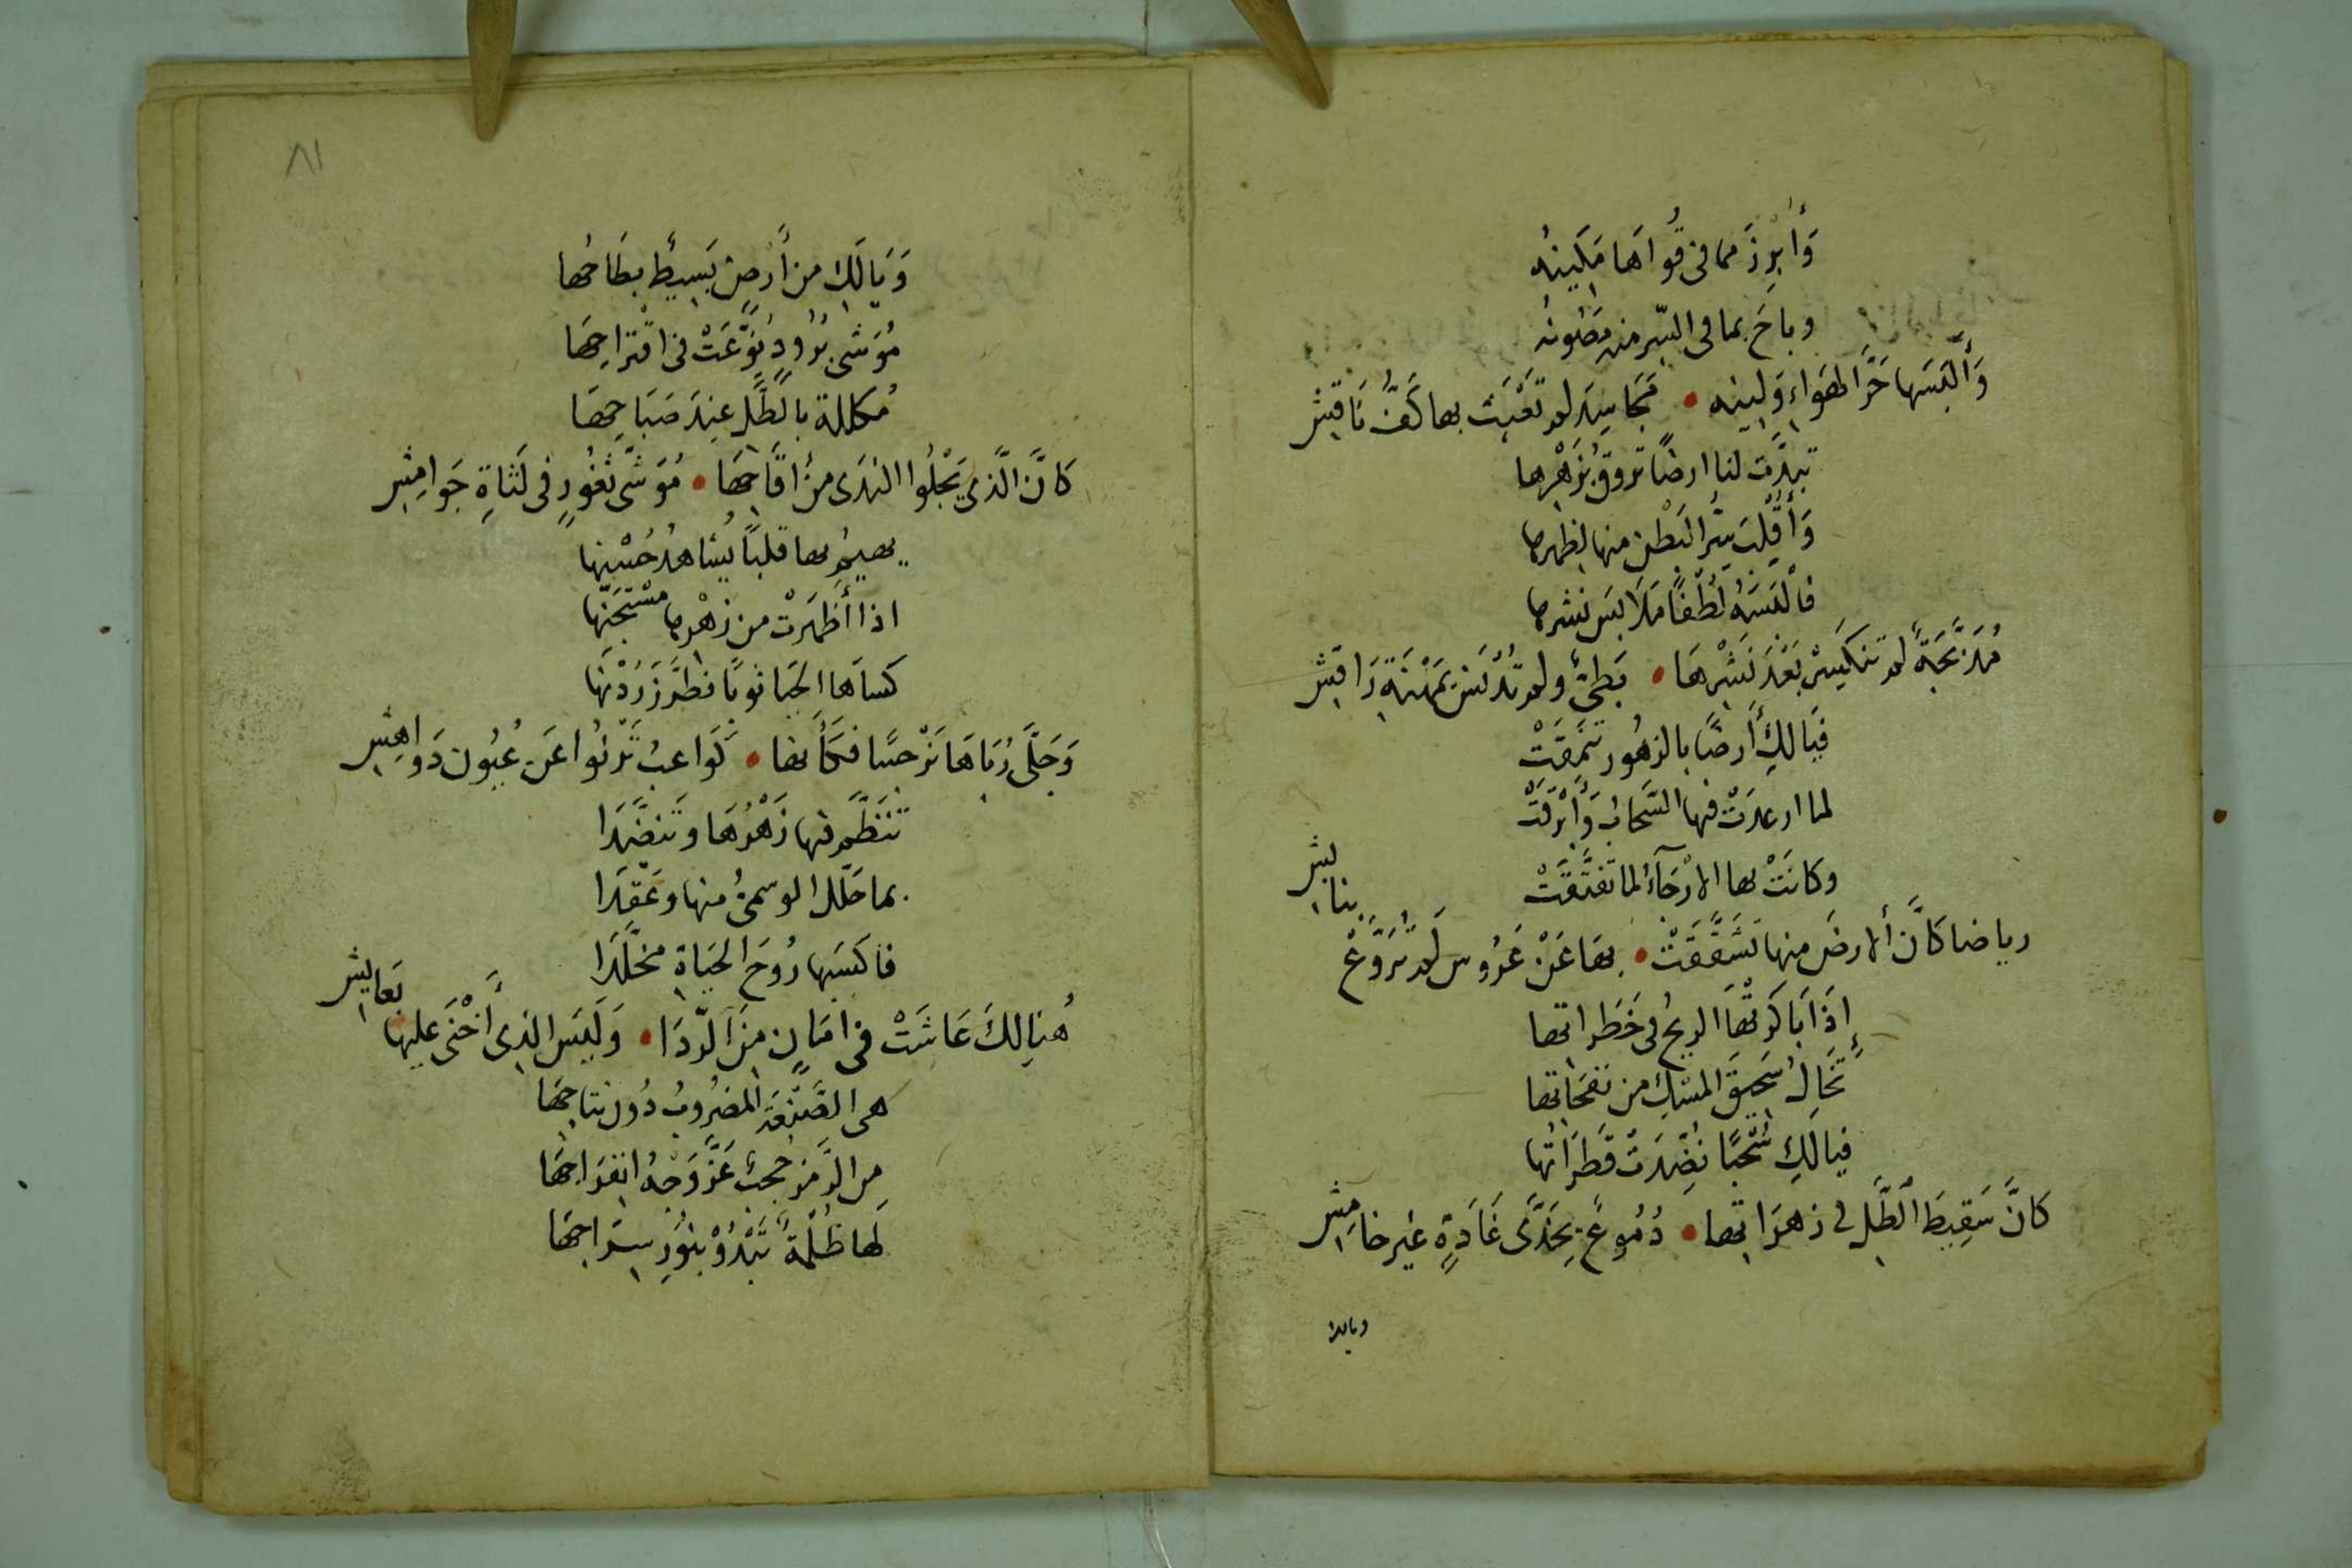 وَأَبْرِزَ مما فى قُواهَا مَكِينه
وباحَ بما فى السّر منه مَصُونُه
وَأَلْبَسَها حَرَّ الهَواءِ وَلِينِه • مَجَاسِد لم تَعْبَث بها كَفُّ نَاقِشِ
تبدَّت لنا ارضًا تروقُ بزَهْرِها
وَأَقْلَبَ سِرَّ البَطْنِ منها لظهرها
فأَلْبَسَهُ لُطْفًا مَلَابسَ نشرها
مُدَبَّجَةً لم تنكَمِشْ بَعْدَ نَشْرِهَا • بَطِىٍّ ولم تُدْنَس بمَهْنَةِ رَاقِشِ
فَيَا لَكِ أَرضًا بالزهُور تَنَمَّقَتْ
لما ارعدَتْ فيها السَّحابُ وَأَبْرَقَتْ
وكانَتْ بها الأرْجَآءُ لما تفتَّقَتْ
رياضا كأنَّ الأرضَ منها تَشَقَّقَتْ • بها عَنْ عَرُوسٍ لَم تُرَوَّعْ بنابشِ
إذَا بَاكَرتْهَا الريحُ فى خَطَراتها
تَخَالُ سَحيقَ المسْكِ من نفحَاتها
فيا لَكِ سُحْبًا نُضِّدَتْ قَطَرَاتُها
كانَّ سَقِيطَ الطَّلِّ فى زهرَاتها • دُمُوعٌ بِخَدَّى غَادَةٍ غير خامِشِ
ويالك
٨١
وَيَا لَكِ من أَرضٍ بَسِيطٍ بِطَاحُها
مُوَشى بُرُودٍ نُوِّعَتْ فى اقْتراحِهَا
مُكللة بالطَّلِّ عِندَ صَبَاحِهَا
كَانَّ الَّذى يَجْلُوا الندَى من أقَاحِهَا • مُوَشَّى ثغُورٍ فى لَثَاةِ جَوامِشِ
يهيمُ بها قلبًا يُشاهدُ حُسْنها
اذا أَظهَرَتْ من زهْرها مسْتجَنّها
كسَاها الحَيَا ثوبًا فطَرَّزَ رُدْنَها
وَجَلَّى رُبَاهَا نَرْجسًا فكَأنها • كَوَاعبُ تَرْنُوا عَن عُيُون دَوَاهِشِ
تَنَظَّم فيها زَهْرُهَا وَتَنضَّدَا
بما حَلَّل الوسمىُّ منها وعَقَّدَا
فاكسَبها رُوحَ الحيَاةِ مخَلَّدَا
هُنالِكَ عَاشَتْ فى امَانٍ مِنَ الرَّدَا • وَلَيسَ الذى أَخْنَى عليها بعَايشِ
هى الصَّنْعَة المضرُوبُ دُون نتاجِهَا
من الرَّمز حُجبٌ عَزَّ وَجْهُ انفرَاجِهَا
لها ظُلْمَةٌ تَبْدُوْ بنُورِ سِرَاجِهَا